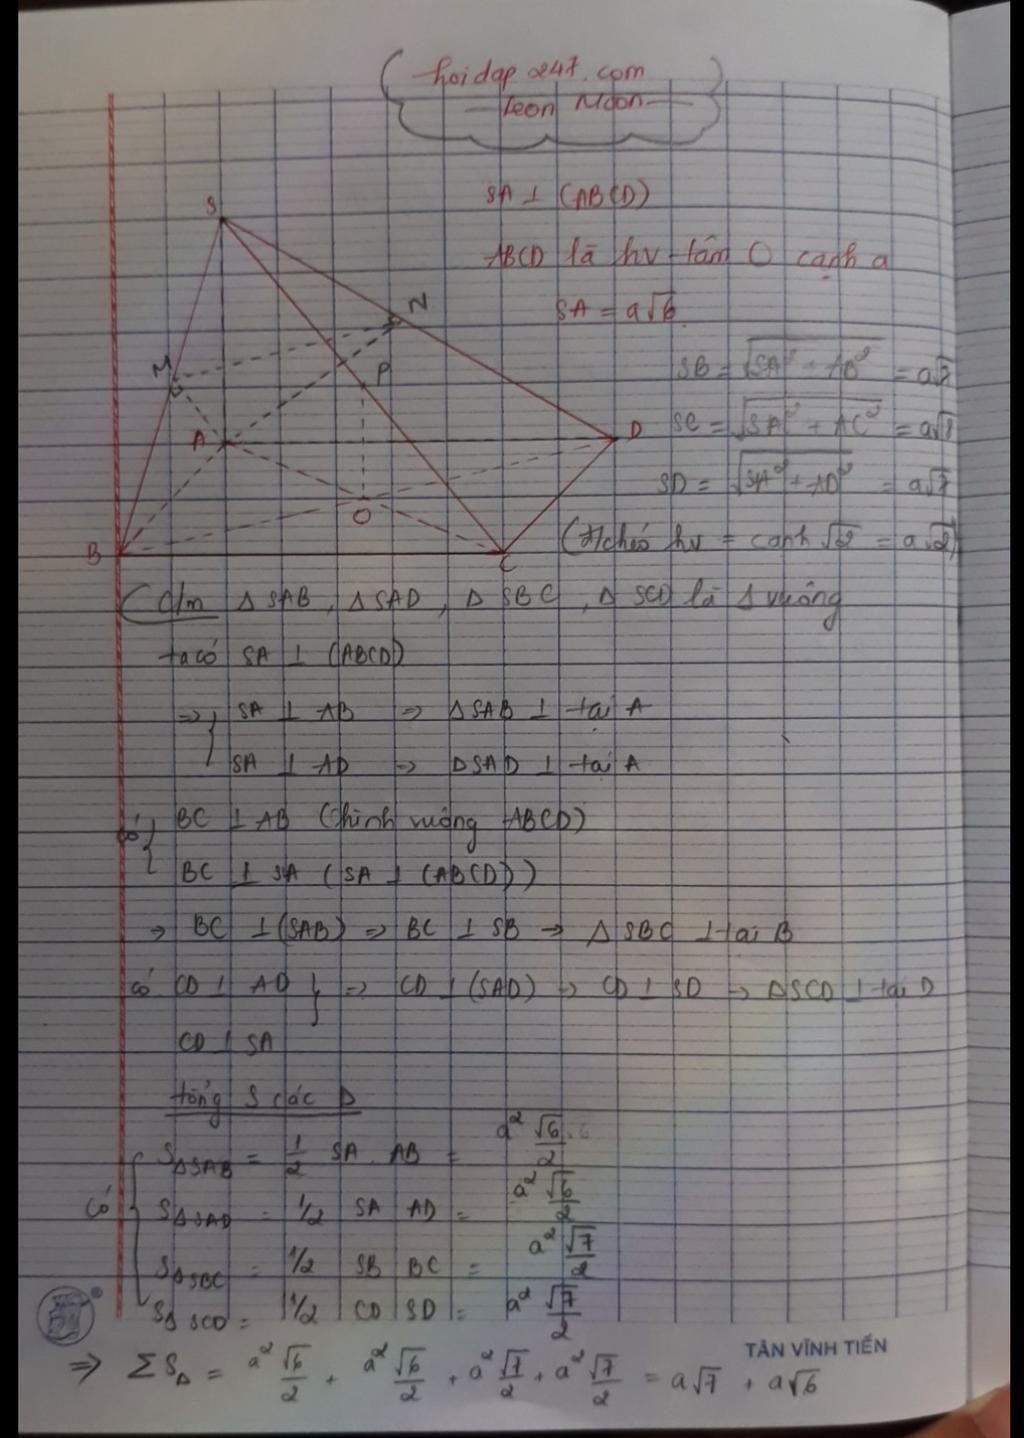 hoidap247.com
Leon Moon
SA ⊥ (ABCD)
ABCD là hv tâm O cạnh a
SA = a√6
SB = √SA² + AB² = a√7
SC = √SA² + AC² = a√8
SD = √SA² + AD² = a√7
(đ/chéo hv = cạnh √2 = a√2)
S
N
M
P
A
D
O
B
C
C/m ΔSAB, ΔSAD, ΔSBC, ΔSCD là Δ vuông
ta có SA ⊥ (ABCD)
=> { SA ⊥ AB => ΔSAB ⊥ tại A
SA ⊥ AD => ΔSAD ⊥ tại A
có { BC ⊥ AB (hình vuông ABCD)
BC ⊥ SA (SA ⊥ (ABCD))
=> BC ⊥ (SAB) => BC ⊥ SB => ΔSBC ⊥ tại B
có CD ⊥ AD } => CD ⊥ (SAD) => CD ⊥ SD => ΔSCD ⊥ tại D
CD ⊥ SA
tổng S các Δ
có { SΔSAB = 1/2 SA. AB = a² √6/2
SΔSAD = 1/2 SA AD = a² √6/2
SΔSBC = 1/2 SB BC = a² √7/2
SΔSCD = 1/2 CD SD = a² √7/2
TÂN VĨNH TIẾN
=> ΣSΔ = a²√6/2 + a²√6/2 + a²√7/2 + a²√7/2 = a√7 + a√6